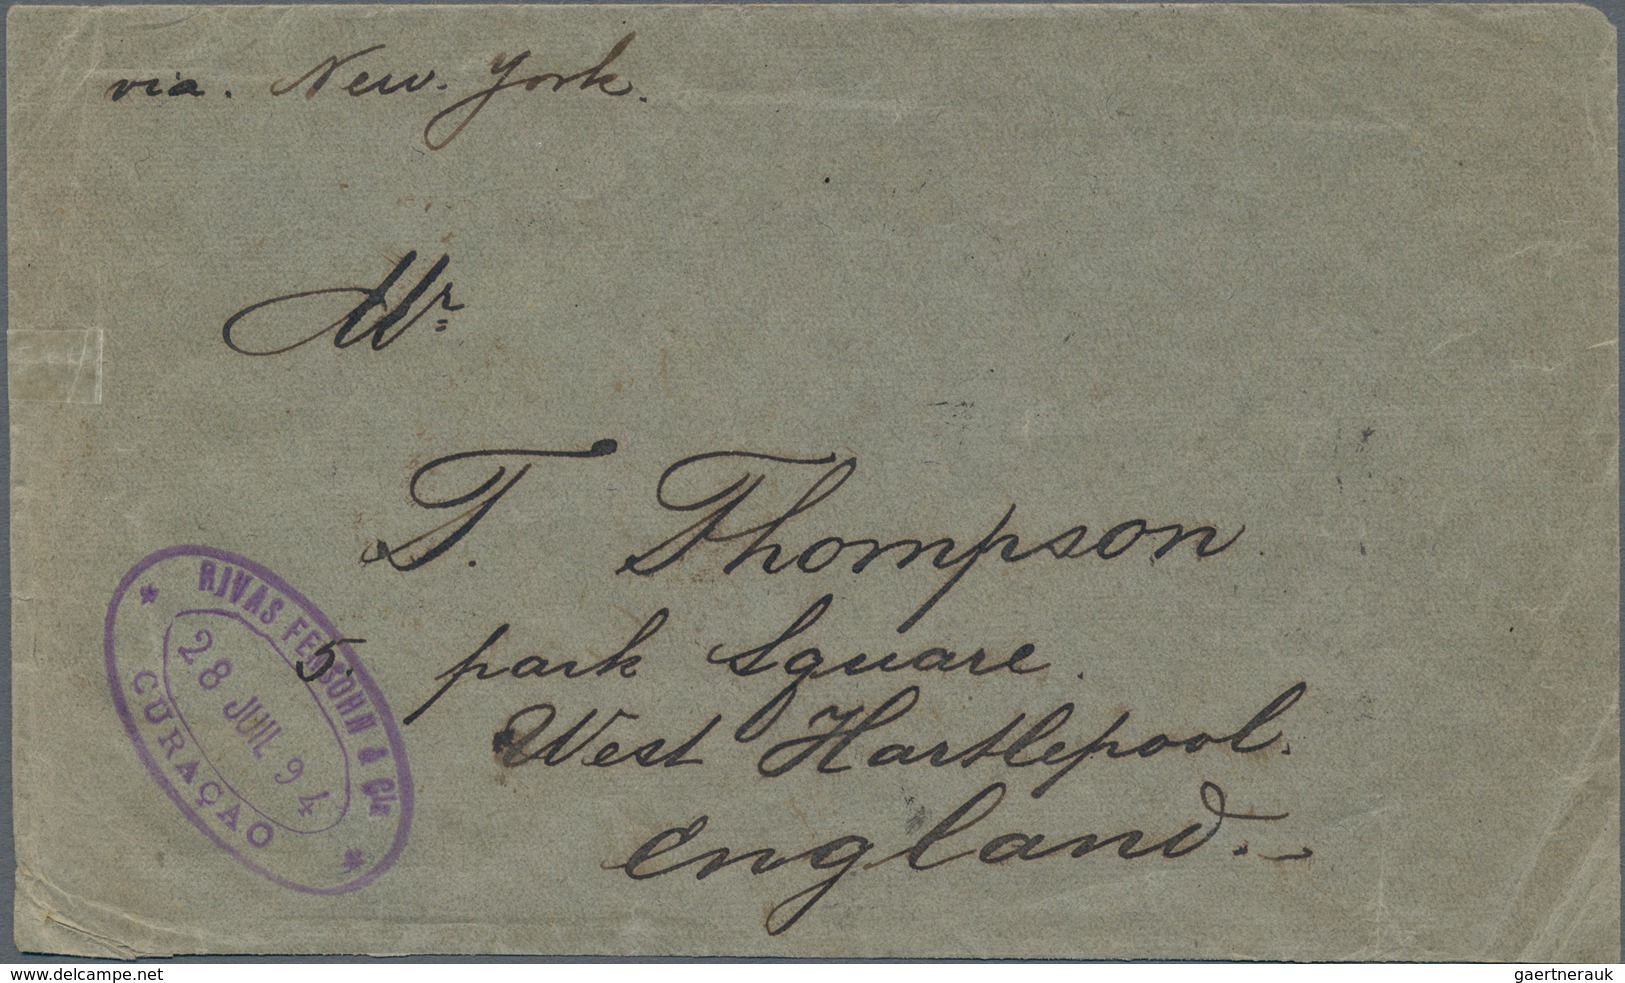 via. New. York.
Mr
T. Thompson
5. park Square.
West Hartlepool.
England.
* RIVAS FENSOHN & Cie *
28 JUIL 94
CURAÇAO
www.delcampe.net
gaertnerauk